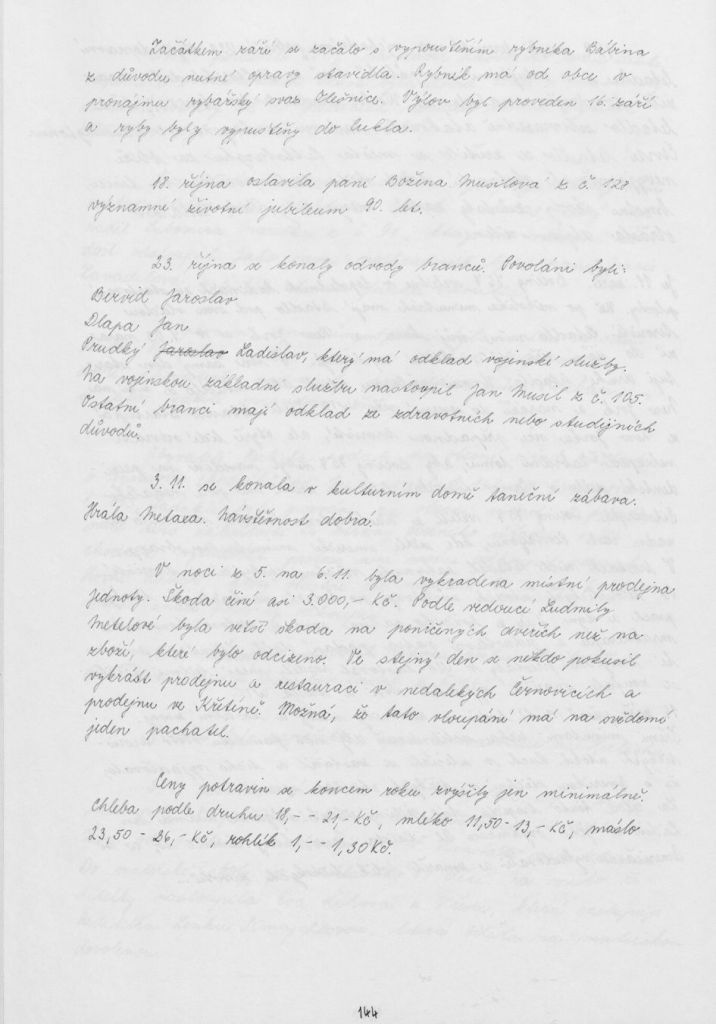 Začátkem září se začalo s vypouštěním rybníka Bábina
z důvodu nutné opravy stavidla. Rybník má od obce v
pronájmu rybářský svaz Olešnice. Výlov byl proveden 16. září
a ryby byly vypuštěny do lukla.
18. října oslavila paní Božena Musilová z č. 128
významné životní jubileum 90. let.
23. října se konaly odvody branců. Povoláni byli:
Bervid Jaroslav
Dlapa Jan
Prudký Jaroslav Ladislav, který má odklad vojenské služby.
Na vojenskou základní službu nastoupil Jan Musil z č. 105.
Ostatní branci mají odklad ze zdravotních nebo studijních
důvodů.
3. 11. se konala v kulturním domě taneční zábava.
Hrála Metaxa. Návštěvnost dobrá.
V noci z 5. na 6. 11. byla vykradena místní prodejna
jednoty. Škoda činí asi 3.000,- Kč. Podle vedoucí Ludmily
Metelové byla větší škoda na poničených dveřích než na
zboží, které bylo odcizeno. Ve stejný den se někdo pokusil
vykrást prodejnu a restauraci v nedalekých Černovicích a
prodejnu ve Křetíně. Možná, že tato vloupání má na svědomí
jeden pachatel.
Ceny potravin se koncem roku zvýšily jen minimálně.
Chleba podle druhu 18,- - 21,- Kč, mléko 11,50 - 13,- Kč, máslo
23,50 - 26,- Kč, rohlík 1,- - 1,30 Kč.
144